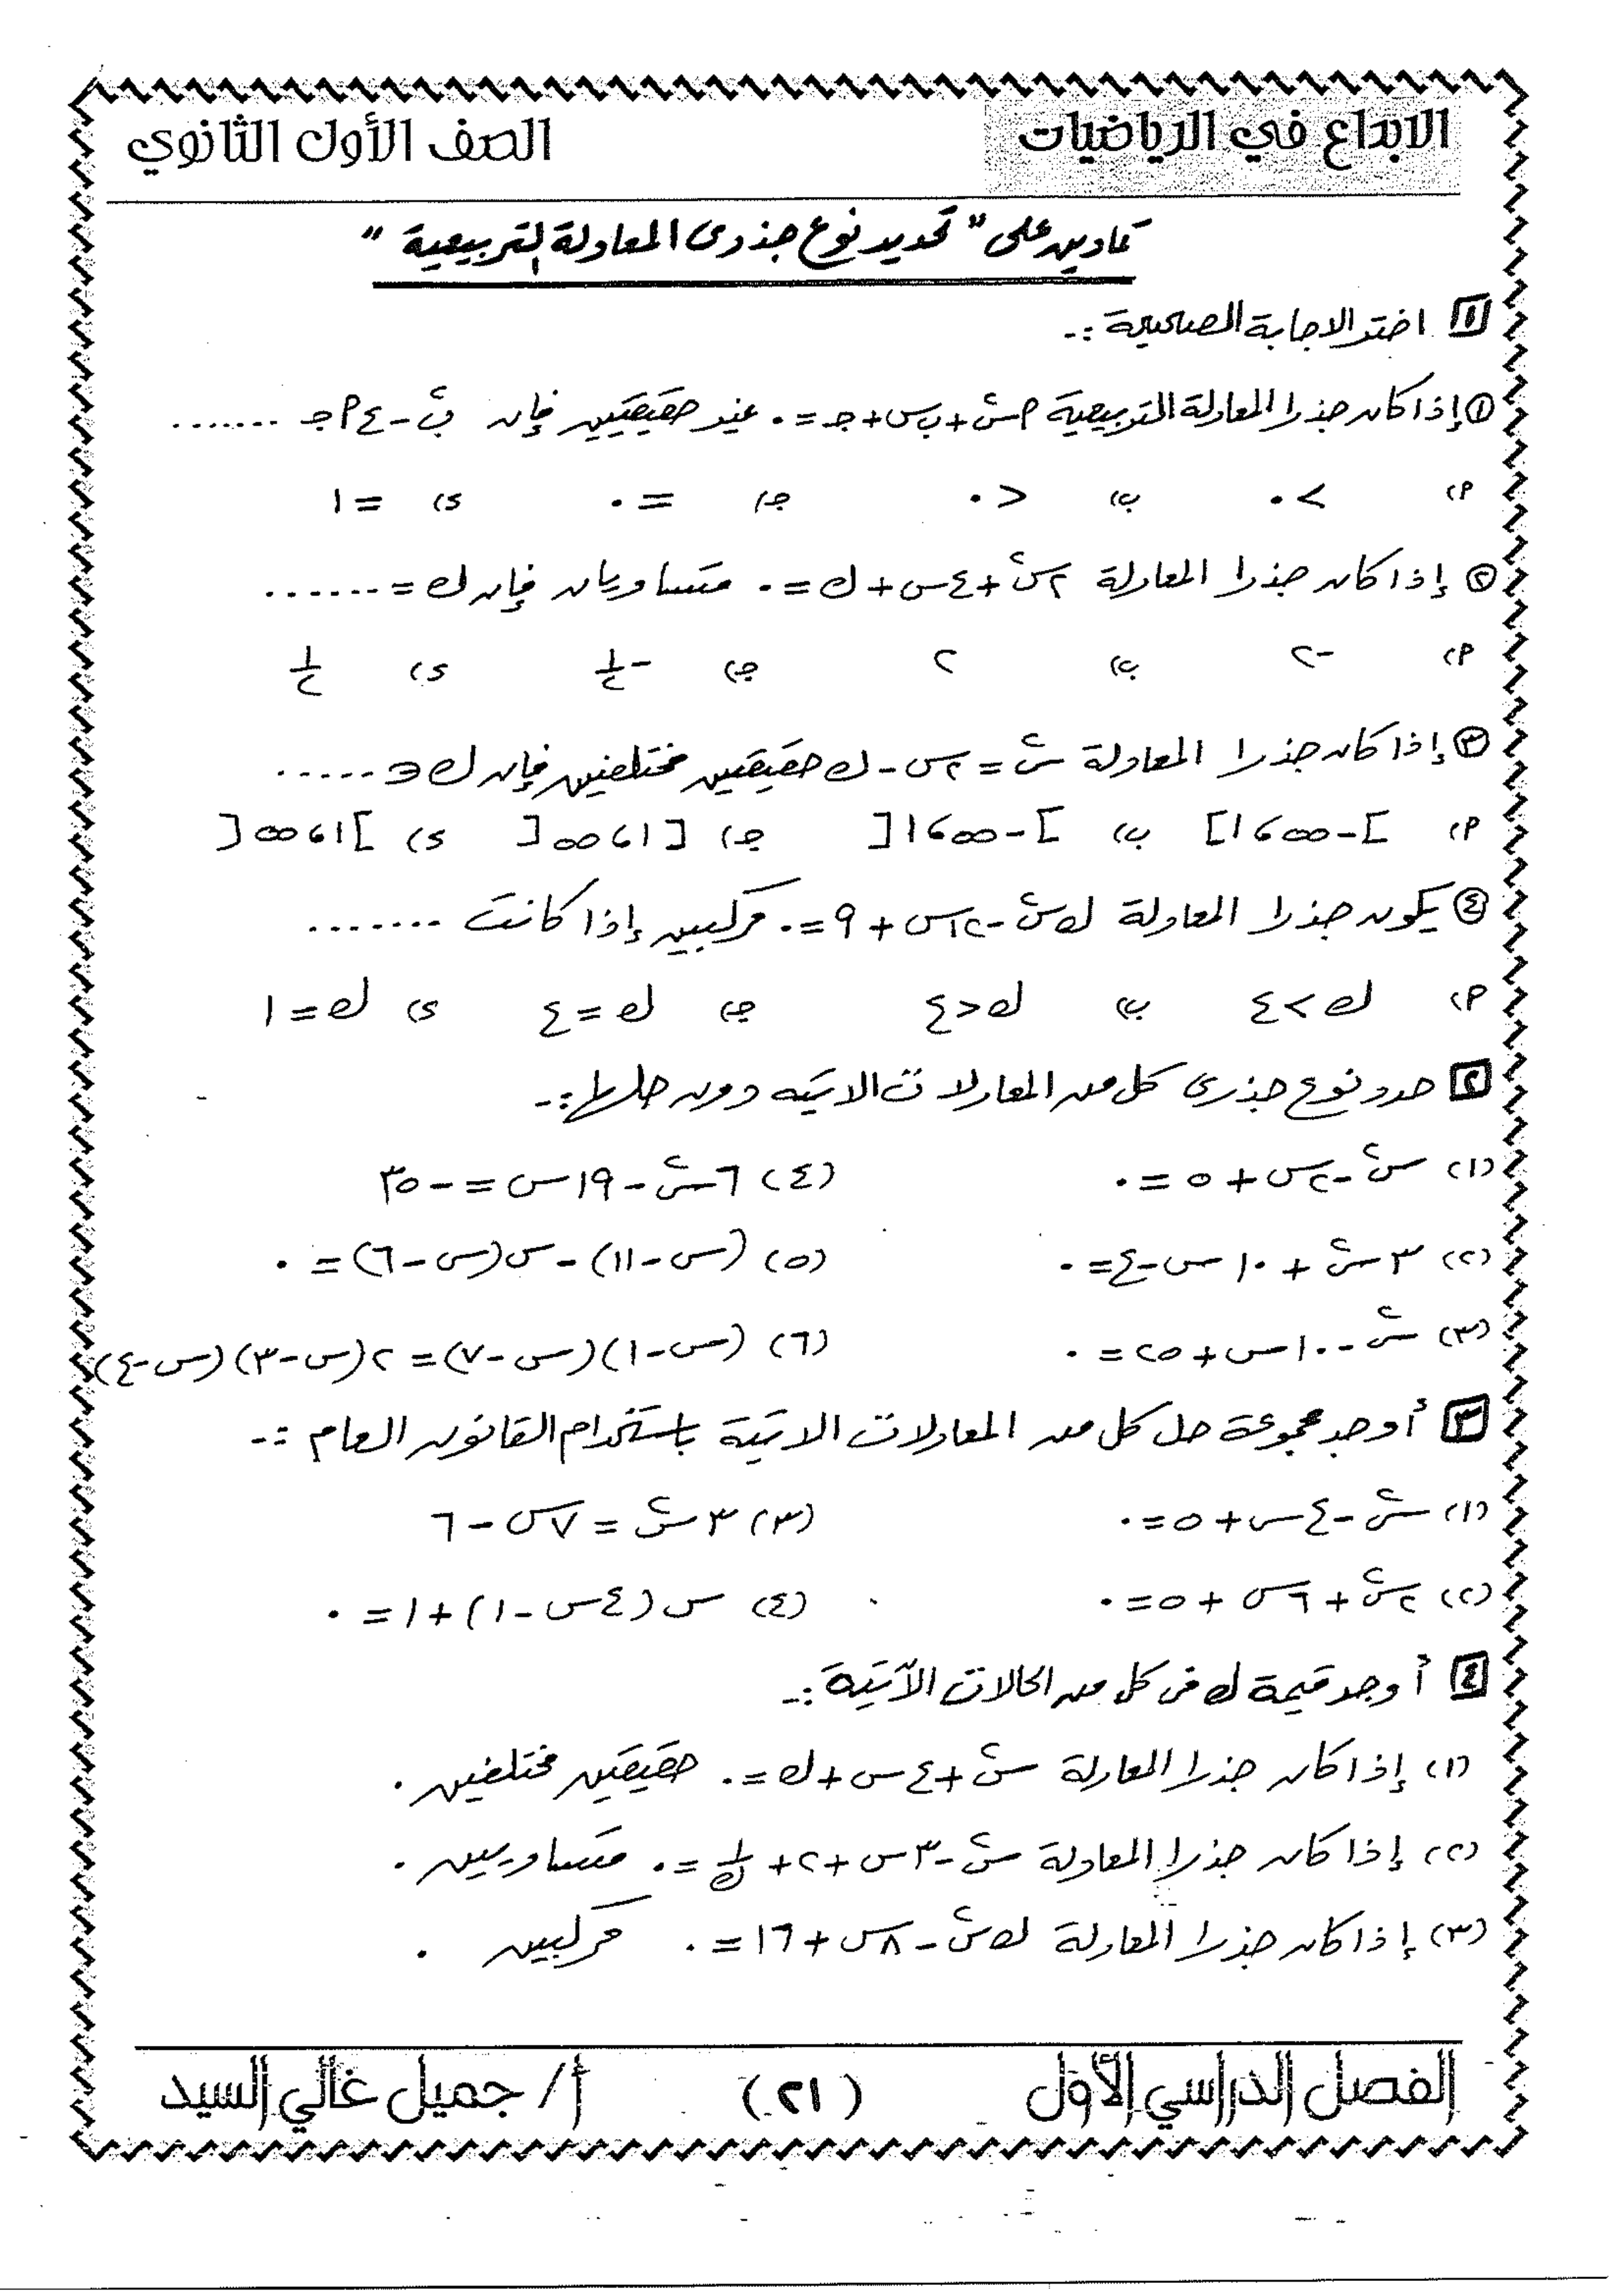 الابداع في الرياضيات
الصف الأول الثانوي
تمارين على "تحديد نوع جذرى المعادلة التربيعية"
١ اختر الاجابة الصحيحة :-
① إذا كان جذرا المعادلة التربيعية ٩س٢ + ب س + جـ = ٠ غير حقيقيين فإن ب٢ - ٤ ٩ جـ .......
٩) > ٠ ب) < ٠ جـ) = ٠ د) = ١
② إذا كان جذرا المعادلة ٢س٢ + ٤س + ك = ٠ متساويان فإن ك = ......
٩) -٢ ب) ٢ جـ) -١/٢ د) ١/٢
③ إذا كان جذرا المعادلة س٢ = ٢س - ك حقيقيين مختلفين فإن ك ∈ .....
٩) ]-∞ ، ١] ب) ]-∞ ، ١[ جـ) [١ ، ∞[ د) ]١ ، ∞[
④ يكون جذرا المعادلة ك س٢ - ١٢س + ٩ = ٠ مركبين إذا كانت .......
٩) ك > ٤ ب) ك < ٤ جـ) ك = ٤ د) ك = ١
٢ حدد نوع جذرى كل من المعادلات الاتيه دون حلها :-
(١) س٢ - ٢س + ٥ = ٠
(٤) ٦س٢ - ١٩س = -٣٥
(٢) ٣س٢ + ١٠س - ٤ = ٠
(٥) (س - ١١) - س(س - ٦) = ٠
(٣) س٢ - ١٠س + ٢٥ = ٠
(٦) (س - ١)(س - ٧) = ٢(س - ٣)(س - ٤)
٣ أوجد مجموعة حل كل من المعادلات الاتية باستخدام القانون العام :-
(١) س٢ - ٤س + ٥ = ٠
(٣) ٣س٢ = ٧س - ٦
(٢) ٢س٢ + ٦س + ٥ = ٠
(٤) س(٤س - ١) + ١ = ٠
٤ أوجد قيمة ك فى كل من الحالات الآتية :-
(١) إذا كان جذرا المعادلة س٢ + ٤س + ك = ٠ حقيقين مختلفين .
(٢) إذا كان جذرا المعادلة س٢ - ٣س + ٢ + ١/ك = ٠ متساويين .
(٣) إذا كان جذرا المعادلة ك س٢ - ٨س + ١٦ = ٠ مركبين .
الفصل الدراسي الأول
(٢١)
أ/ جميل غالي السيد